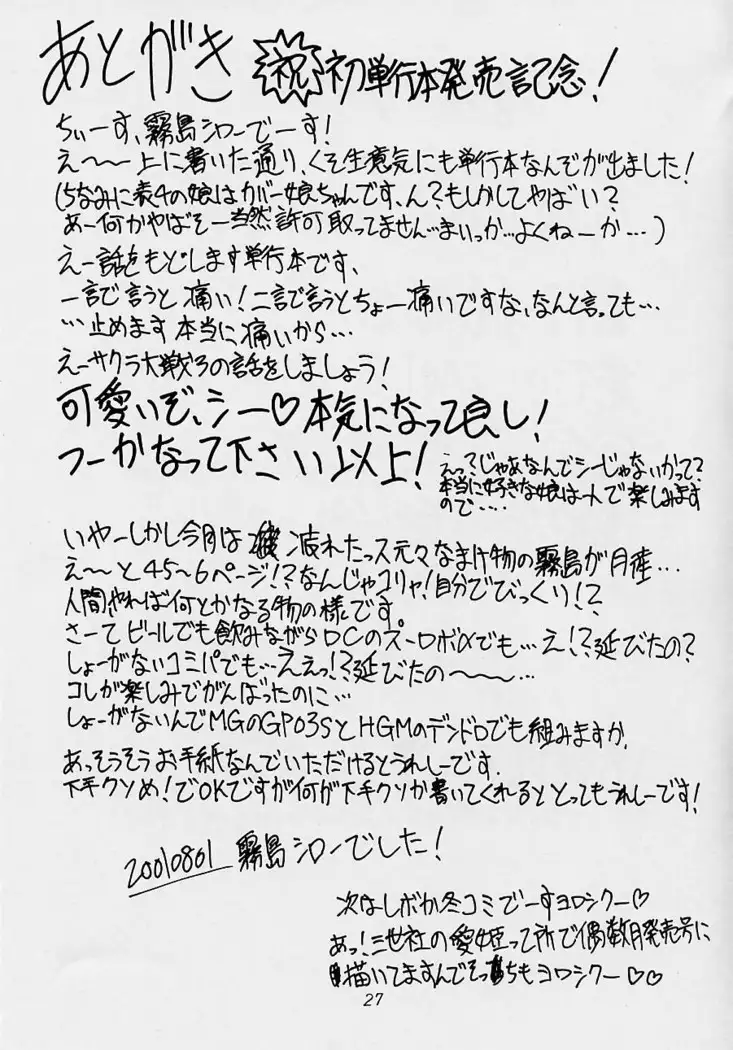 あとがき 祝 初単行本発売記念!
ちぃーす、霧島シローでーす!
え〜〜上に書いた通り、くそ生意気にも単行本なんぞが出ました!
(ちなみに表4の娘はカバー娘ちゃんです、ん?もしかしてやばい?
あー何かやばそー当然許可取ってません…まいっか…よくねーか…)
えー話をもどします単行本です、
一言で言うと痛い!二言で言うとちょー痛いですな、なんと言っても…
…止めます本当に痛いから…
えーサクラ大戦3の話をしましょう!
可愛いぞ、シー♡本気になって良し!
つーかなって下さい以上!
えっ?じゃあなんでシーじゃないかって?
本当に好きな娘は一人で楽しみます
ので‥‥
いやーしかし今月は疲れたっス元々なまけ物の霧島が月産…
え〜〜と45〜6ページ!?なんじゃコリャ!自分でびっくり!?
人間やれば何とかなる物の様です。
さーてビールでも飲みながらDCのスーロボαでも…え!?延びたの?
しょーがないコミパでも…ええっ!?延びたの〜〜〜…
コレが楽しみでがんばったのに…
しょーがないんでMGのGP03SとHGMのデンドロでも組みますか、
あっそうそうお手紙なんていただけるとうれしーです.
下手クソめ!でOKですが何が下手クソか書いてくれるととってもうれしーです!
20010801 霧島シローでした!
次はしボか冬コミでーすヨロシクー♡
あっ!三世社の愛姫って所で偶数月発売号に
描いてますんでそっちもヨロシクー♡♡
27